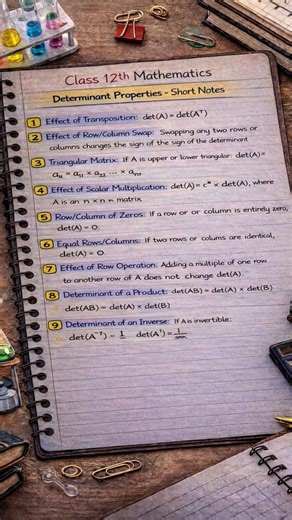 Class 12th Mathematics
Determinant Properties - Short Notes
1 Effect of Transposition: det(A) = det(Aᵀ)
2 Effect of Row/Column Swap: Swapping any two rows or
columns changes the sign of the sign of the determinant
3 Triangular Matrix: If A is upper or lower triangular: det(A) =
= a₁₁ × a₂₂ ... ×
4 Effect of Scalar Multiplication: det(A) = cⁿ × det(A), where
A is an n × n n matrix
5 Row/Column of Zeros: If a row or or column is entirely zero,
det(A) = 0.
6 Equal Rows/Columns: If two rows or colums are identical,
det(A) = 0
7 Effect of Row Operation: Adding a multiple of one row
to another row of A does not change det(A).
8 Determinant of a Product: det(AB) = det(A) × det(B)
det(AB) = det(A) × det(B)
9 Determinant of an Inverse: If A is invertible:
det(A⁻¹) = 1 det(A¹) = 1